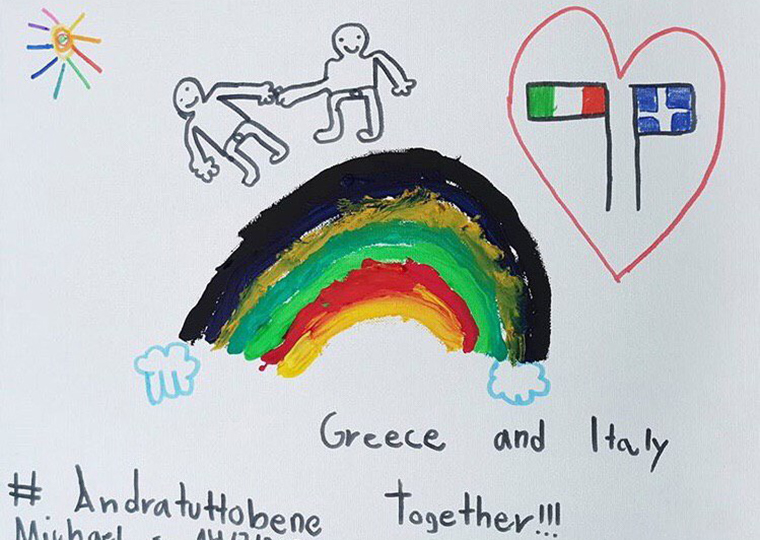 Greece and Italy
# Andratuttobene Together!!!
Michael